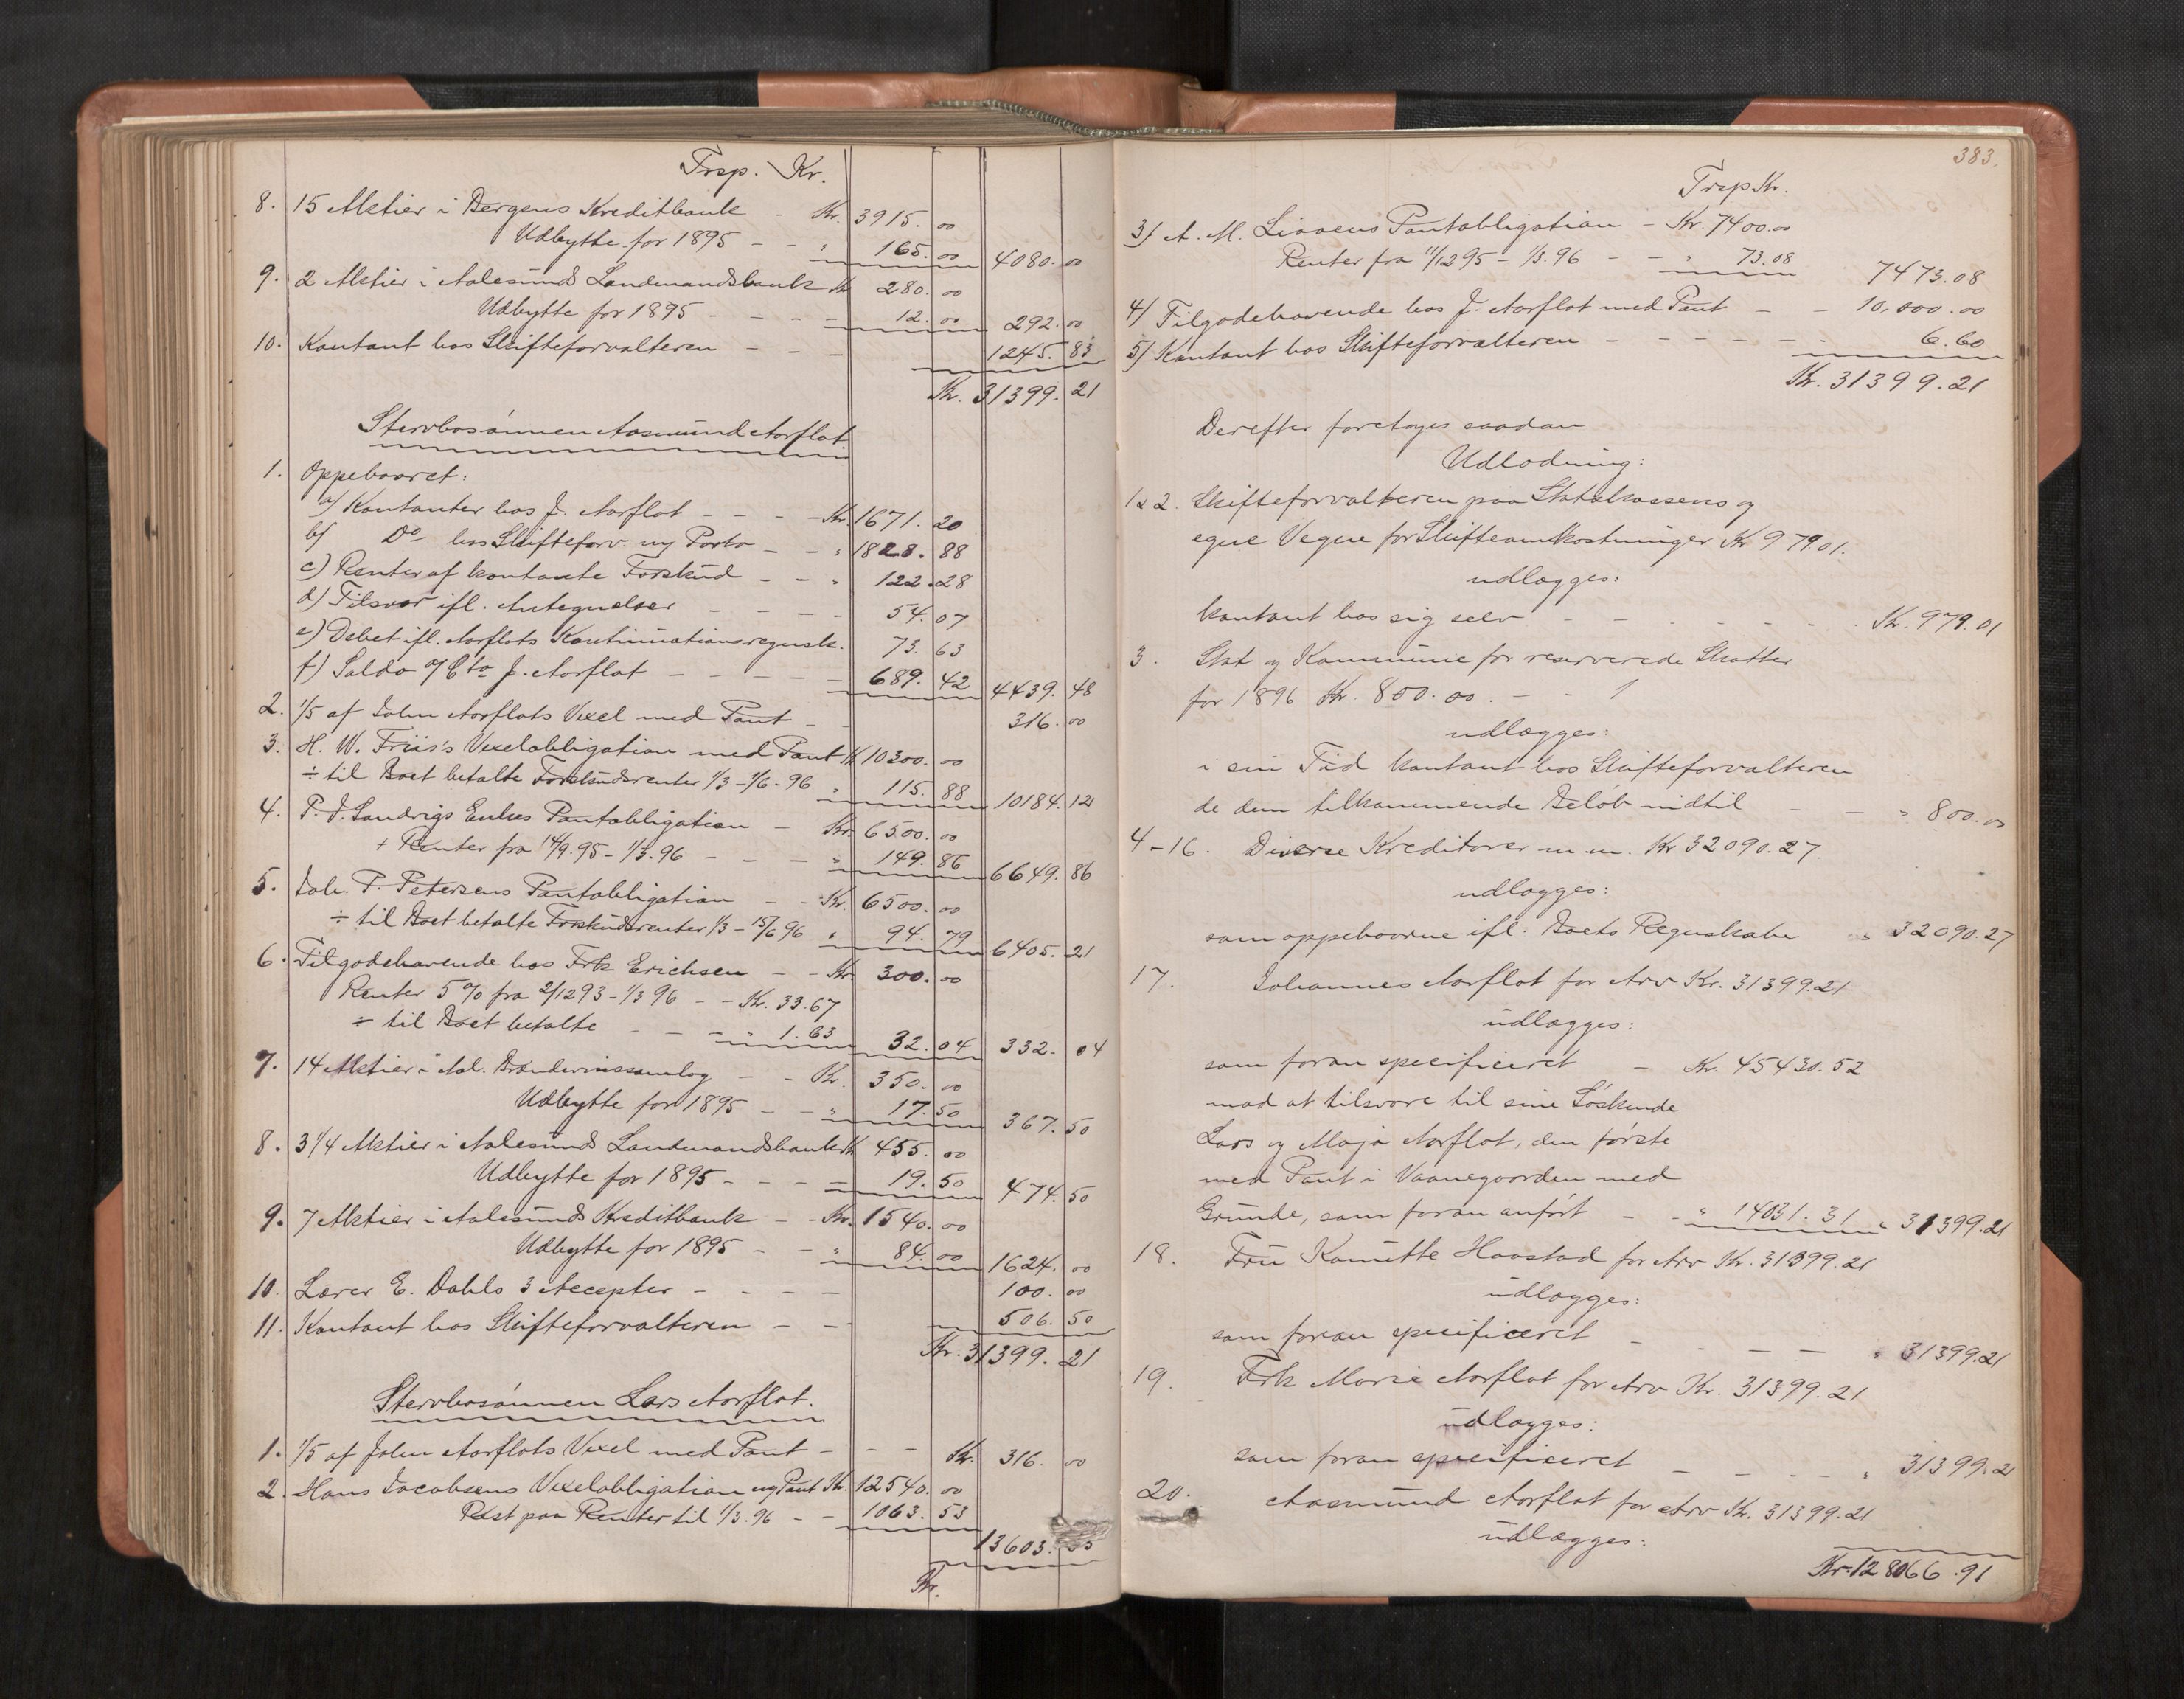 Trsp. Kr.
8. 15 Aktier i Bergens Kreditbank - Kr. 3915. 00
Udbytte for 1895 - - " 165. 00 4080. 00
9. 2 Aktier i Aalesunds Landmandsbank Kr 280. 00
Udbytte for 1895 - - - - 12. 00 292. 00
10. Kontant hos Skifteforvalteren - - - 1245. 83
Kr. 31399. 21
Stervbosønnen Aasmund Aarflot.
1. Oppebaaret:
a) Kontanter hos J. Aarflot - - - - Kr. 1671. 20
b) Do hos Skifteforv. og Porto - - " 1828. 88
c) Renter af kontante Forskud - - " 122. 28
d) Tilsvar ifl. Antegnelser - - - - 54. 07
e) Debet ifl. Aarflots Kontinuationsregnsk. 73. 63
f) Saldo a/ Cto J. Aarflot - - - - - 689. 42 4439. 48
2. 1/5 af John Aarflots Vexel med Pant - - 316. 00
3. H. W. Friis's Vexelobligation med Pant Kr 10300. 00
÷ til Boet betalte Forskudsrenter 1/3 - 1/6 - 96 " 115. 88 10184. 12
4. P. J. Sandvigs Enkes Pantobligation - Kr. 6500. 00
+ Renter fra 14/9. 95 - 1/3. 96 - - - " 149. 86 6649. 86
5. Joh. P. Petersens Pantobligation - - Kr. 6500. 00
÷ til Boet betalte Forskudsrenter 1/3 - 15/6 96 " 94. 79 6405. 21
6. Tilgodehavende hos Frk Erichsen - - Kr. 300. 00
Renter 5% fra 2/12 93 - 1/3 96 - - Kr. 33.67
÷ til Boet betalte - - - " 1.63 32. 04 332. 04
7. 14 Aktier i Aal. Brændevinssamlag - - Kr. 350. 00
Udbytte for 1895 - - " 17. 50 367. 50
8. 3 1/4 Aktier i Aalesunds Landmandsbank Kr 455. 00
Udbytte for 1895 - - - - 19. 50 474. 50
9. 7 Aktier i Aalesunds Kreditbank - - Kr. 1540. 00
Udbytte for 1895 - - " 84. 00 1624. 00
10. Lærer E. Dahls 3 Accepter - - - - 100. 00
11. Kontant hos Skifteforvalteren - - 506. 50
Kr. 31399. 21
Stervbosønnen Lars Aarflot.
1. 1/5 af John Aarflots Vexel med Pant - - - Kr. 316. 00
2. Hans Jacobsens Vexelobligation og Pant Kr. 12540. 00
Rest paa Renter til 1/3. 96 - - 1063. 53
13603. 53
Kr.
383.
Trsp Kr.
3) A. M. Liaaens Pantobligation - Kr. 7400.00
Renter fra 11/12 95 - 1/3. 96 - - " 73.08 7473.08
4) Tilgodehavende hos J. Aarflot med Pant - - 10,000.00
5) Kontant hos Skifteforvalteren - - - - - - 6.60
Kr. 31399.21
Derefter foretoges saadan
Udlodning:
1 & 2. Skifteforvalteren paa Statskassens og
egne Vegne for Skifteomkostninger Kr 979.01.
udlægges:
kontant hos sig selv - - - - - - Kr. 979.01
3. Stat og Kommune for reserverede Skatter
for 1896 Kr. 800.00. - -
udlægges:
i sin Tid kontant hos Skifteforvalteren
de dem tilkommende Beløb indtil - - " 800.00
4-16. Diverse Kreditorer m. m. Kr 32090.27
udlægges:
som oppebaarne ifl. Boets Regnskaber " 32090.27
17. Johannes Aarflot for Arv Kr. 31399.21
udlægges:
som foran specificeret - Kr. 45430.52
mod at tilsvare til sine Søskende
Lars og Maja Aarflot, den første
med Pant i Vaanegaarden med
Grunde, som foran anført - - " 14031.31 " 31399.21
18. Fru Kamitte Haastad for Arv Kr. 31399.21
udlægges:
som foran specificeret - - - - " 31399.21
19. Frk Marie Aarflot for Arv Kr. 31399.21
udlægges:
som foran specificeret - - - - " 31399.21
20. Aasmund Aarflot for Arv Kr. 31399.21
udlægges:
Kr. 128066.91